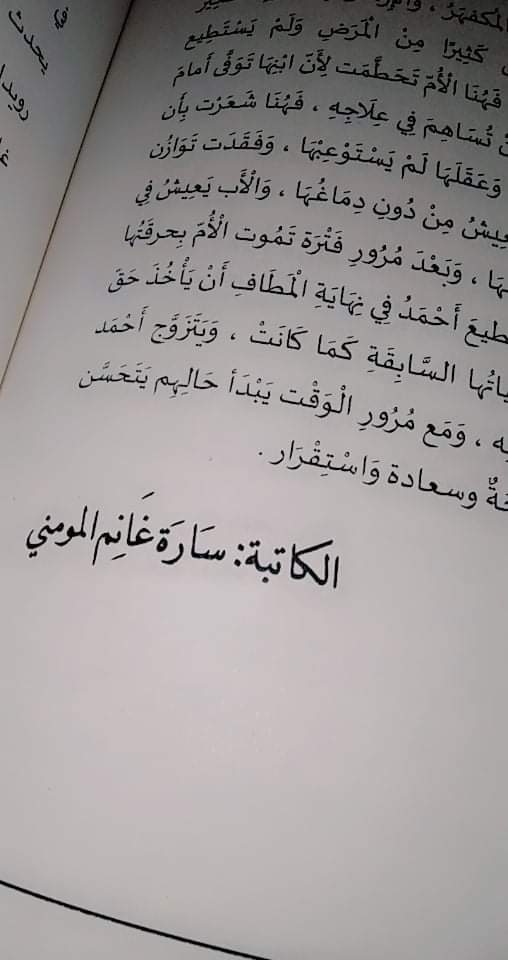 الْمُكْفَهِرُ ،
كَثِيرًا مِنْ الْمَرَضِ وَلَمْ يَسْتَطِيع
فَهُنَا الْأُمّ تَحَطَّمَت لِأَنّ ابْنِهَا تَوَفَّى أَمامَ
تُسَاهِمَ فِي عِلَاجِهِ ، فَهُنَا شَعَرْت بِأَن
وَعَقَلَهَا لَمْ يَسْتَوْعِبْهَا ، وَفَقَدَت تَوَازُن
مِنْ دُونِ دِمَاغُهَا ، وَالْأَب يَعِيشُ فِي
، وَبَعْدَ مُرُورِ فَتْرَة تَمُوت الْأُمّ بِحرقَتُها
أَحْمَدُ فِي نِهَايَةِ الْمَطَافِ أَنْ يَأْخُذَ حَقّ
السَّابِقَةِ كَمَا كَانَتْ ، وَيَتَزَوَّج أَحْمَد
، وَمَع مُرُورِ الْوَقْت يَبْدَأ حَالِهِم يَتَحَسَّن
وسعادة وَاسْتِقْرَار .
الكاتبة: سَارَة غَانِم المومني
في
يحدث